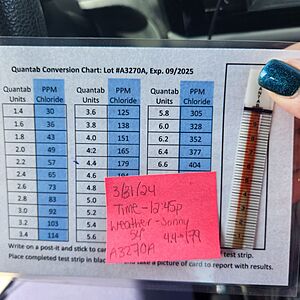 Quantab Conversion Chart: Lot #A3270A, Exp. 09/2025
Quantab Units PPM Chloride Quantab Units PPM Chloride Quantab Units PPM Chloride
1.4 30 3.6 125 5.8 305
1.6 36 3.8 138 6.0 328
1.8 43 4.0 151 6.2 352
2.0 49 4:2 165 6.4 377
2.2 57 4.4 179 6.6 404
2.4 65 4.6
2.6 73 4.8
2.8 83 5.0
3.0 92 5.2
3.2 103 5.4
3.4 114 5.6
3/31/24
Time - 12:45p
Weather - Sunny
54° 4.4 = 179
A3270A
Write on a post-it and stick to car
test strip.
Place completed test strip in blac
and take a picture of card to report with results.